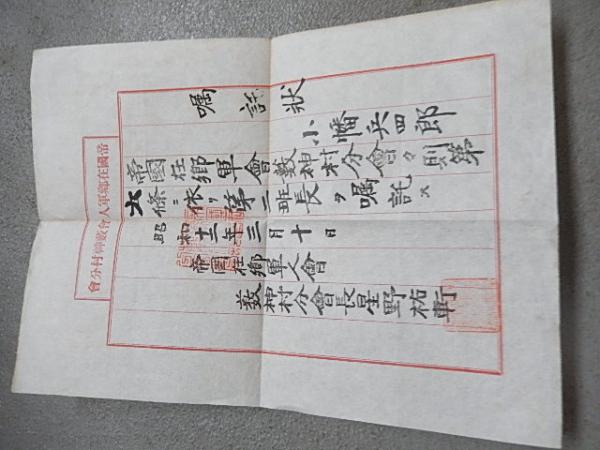 嘱託狀
小幡兵四郎
帝國在鄉軍會薮神村分會々則第
六條ニ依リ第二班長ヲ嘱託ス
昭和十二年三月十日
帝國在鄉軍人會
薮神村分會長星野祐
帝國在鄉軍人會薮神村分會